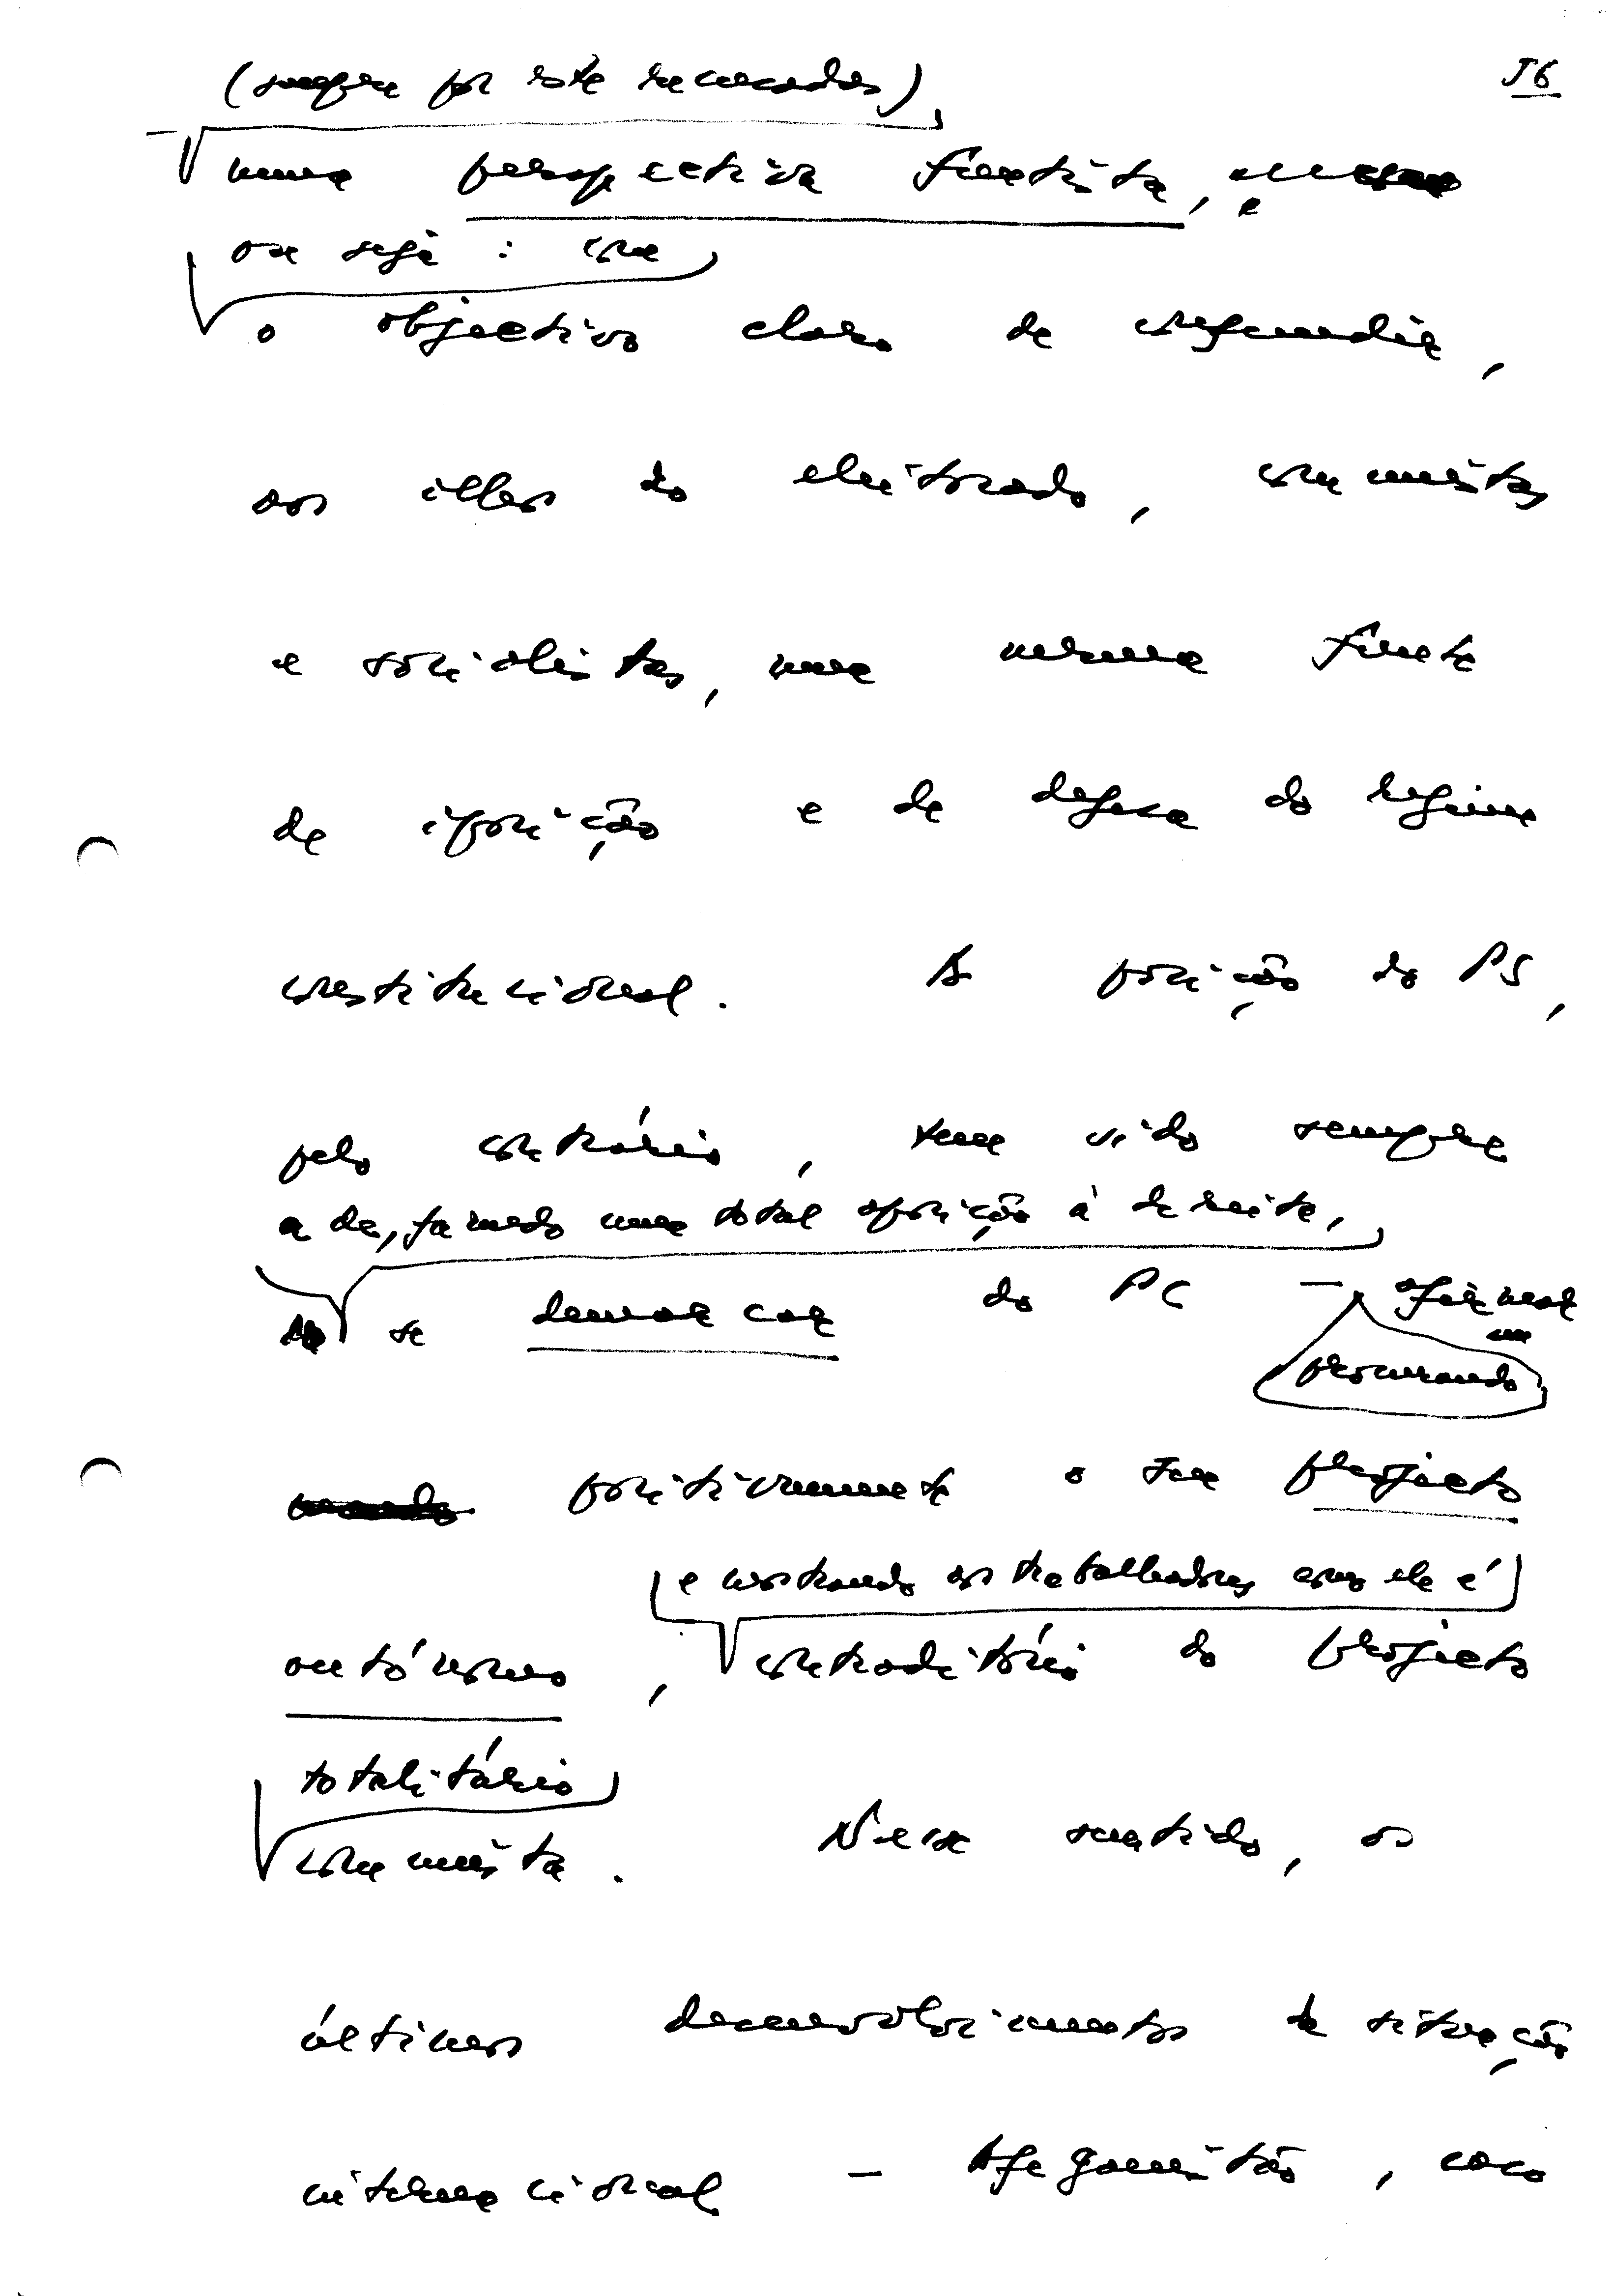 56
(sempre por este recusada)
numa perspectiva frentista, e
ou seja: com
o objectivo claro de confundir,
aos olhos do eleitorado, comunistas
e socialistas, na mesma frente
de oposição e de defesa do regime
constitucional. A posição do PS,
pelo contrário, tem sido sempre
a de, fazendo uma total oposição à direita,
se demarcar do PC –
procurando
positivamente o seu projecto
e mostrando aos trabalhadores como ele é
autónomo, contraditório do projecto
totalitário
comunista. Nesse sentido, os
últimos desenvolvimentos da situação
internacional – Afeganistão, caso